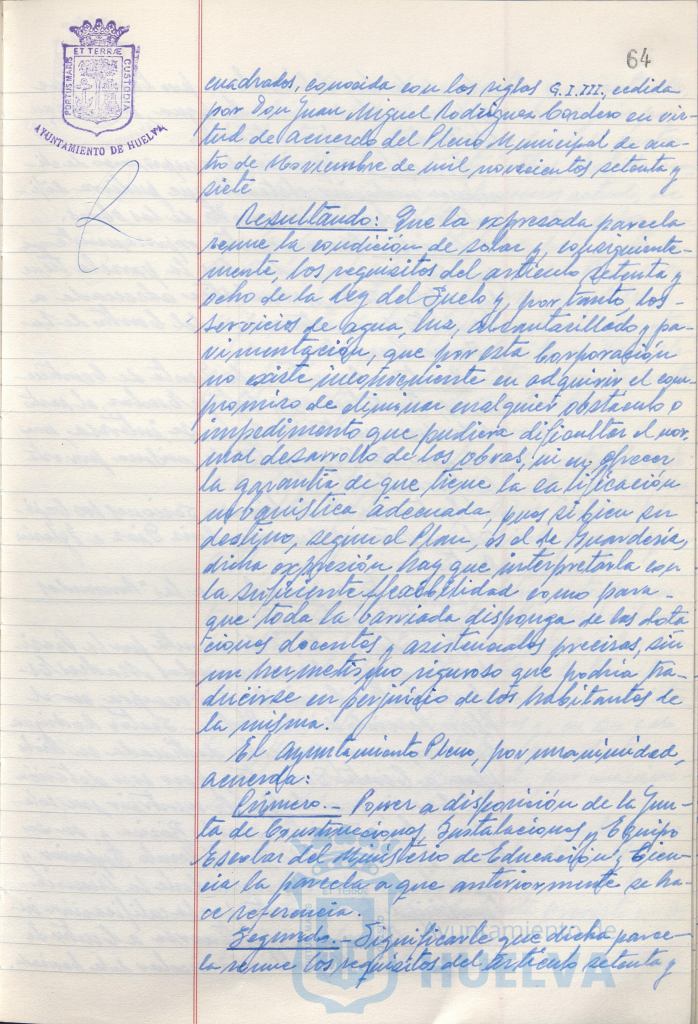 64
PORTUS MARIS
ET TERRÆ
CUSTODIA
AYUNTAMIENTO DE HUELVA
cuadrados, conocida con las siglas G.I.III, cedida
por Don Juan Miguel Rodriguez Cordero en vir-
tud de acuerdo del Pleno Municipal de cua-
tro de Noviembre de mil novecientos setenta y
siete
Resultando: Que la expresada parcela
reune la condición de solar y, consiguiente-
mente, los requisitos del artículo setenta y
ocho de la Ley del Suelo y, por tanto, los
servicios de agua, luz, alcantarillado y pa-
vimentación, que por esta Corporación
no existe inconveniente en adquirir el com
promiso de eliminar cualquier obstaculo o
impedimento que pudiera dificultar el nor-
mal desarrollo de las obras, ni en ofrecer
la garantía de que tiene la calificación
urbanística adecuada, pues si bien su
destino, según el Plan, es el de Guardería,
dicha expresión hay que interpretarla con
la suficiente flexibilidad como para
que toda la barriada disponga de las dota
ciones docentes y asistenciales precisas, sin
un hermetismo riguroso que podría tra-
ducirse en perjuicio de los habitantes de
la misma.
El Ayuntamiento Pleno, por unanimidad,
acuerda:
Primero.- Poner a disposición de la Jun-
ta de Construcciones, Instalaciones y Equipo
Escolar del Ministerio de Educación y Cien-
cia la parcela a que anteriormente se ha-
ce referencia.
Segundo.- Significarle que dicha parce-
la reune los requisitos del artículo setenta y
Ayuntamiento de
HUELVA